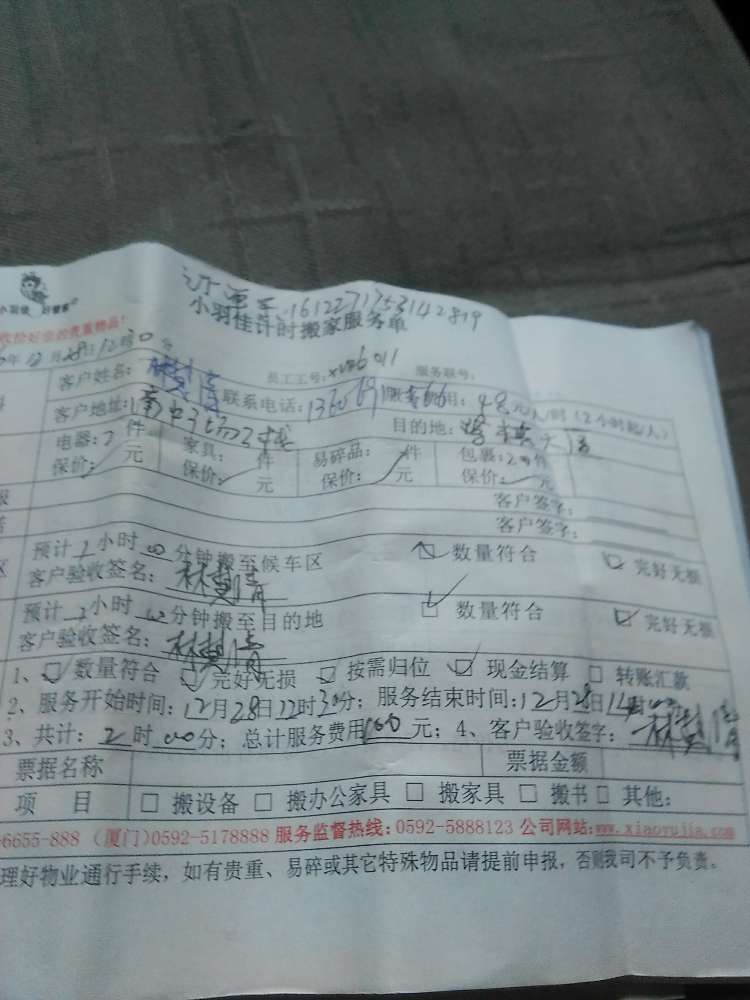 订单号:1612271753142819
小羽佳 好管家
小羽佳计时搬家服务单
收拾好您的贵重物品!
年12月28日12时30分
员工工号: 服务联号:
客户姓名: 联系电话:
客户地址: 目的地:
电器:2件 家具: 件 易碎品: 件 包裹: 件
保价: 元 保价: 元 保价: 元 保价: 元
客户签字:
客户签字:
预计1小时00分钟搬至候车区 数量符合 完好无损
客户验收签名:林慧清
预计1小时00分钟搬至目的地 数量符合 完好无损
客户验收签名:林慧清
1、数量符合 完好无损 按需归位 现金结算 转账汇款
2、服务开始时间:12月28日12时30分;服务结束时间:12月28日
3、共计:2时00分;总计服务费用 元;4、客户验收签字:林慧清
票据名称 票据金额
项 目 搬设备 搬办公家具 搬家具 搬书 其他:
6655-888 (厦门)0592-5178888 服务监督热线:0592-5888123 公司网站:www.xiaoyujia.com
理好物业通行手续,如有贵重、易碎或其它特殊物品请提前申报,否则我司不予负责。